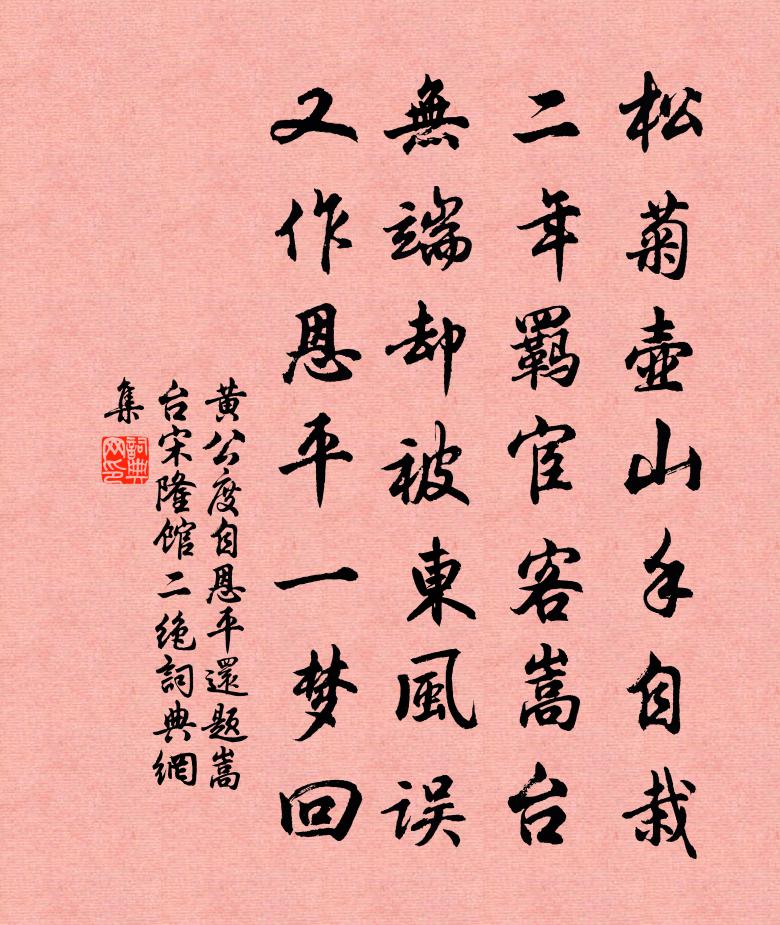 松菊壺山手自栽
二年羈宦客嵩台
無端却被東風误
又作恩平一梦回
黄公度自恩平還题嵩
台宋隆馆二绝詞典網
集
詞典網印